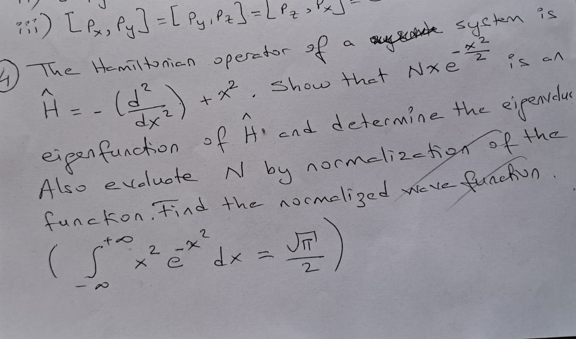 iii) [Px, Py] = [Py, Pz] = [Pz, Px] =
4) The Hamiltonian operator of a system is
Ĥ = - (d²/dx²) + x². Show that Nxe^(-x²/2) is an
eigenfunction of Ĥ and determine the eigenvalue
Also evaluate N by normalization of the
function. Find the normalized wave function.
( ∫_{-∞}^{+∞} x² e^{-x²} dx = √π/2 )